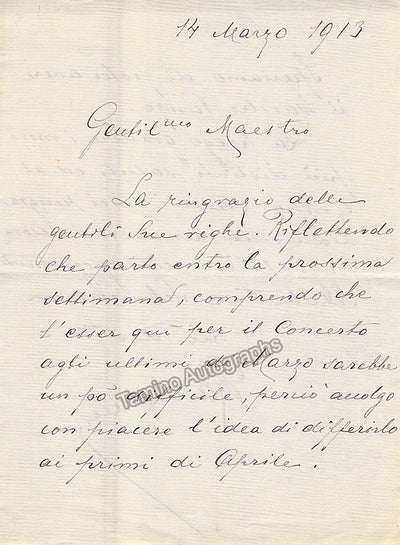 14 Marzo 1913
Gentil.mo Maestro
La ringrazio delle
gentili Sue righe. Riflettendo
che parto entro la prossima
settimana, comprendo che
l'esser quì per il Concerto
agli ultimi di Marzo sarebbe
un po' difficile, perciò accolgo
con piacere l'idea di differirlo
ai primi di Aprile.
Tamino Autographs